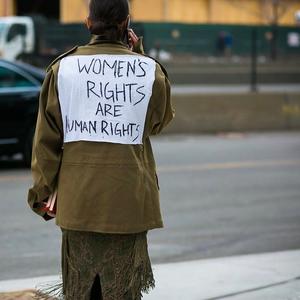 WOMEN'S
RIGHTS
ARE
HUMAN RIGHTS